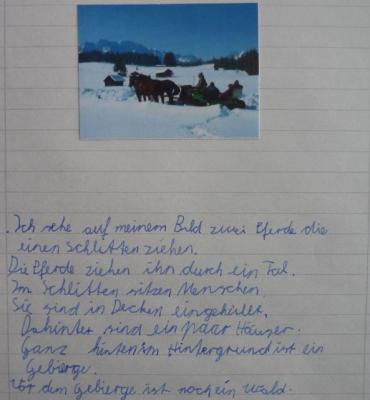 Ich sehe auf meinem Bild zwei Pferde die
einen Schlitten ziehen.
Die Pferde ziehen ihn durch ein Tal.
Im Schlitten sitzen Menschen.
Sie sind in Decken eingehüllt.
Dahinter sind ein paar Häuser.
Ganz hinten im Hintergrund ist ein
Gebierge.
Vor dem Gebierge ist noch ein Wald.